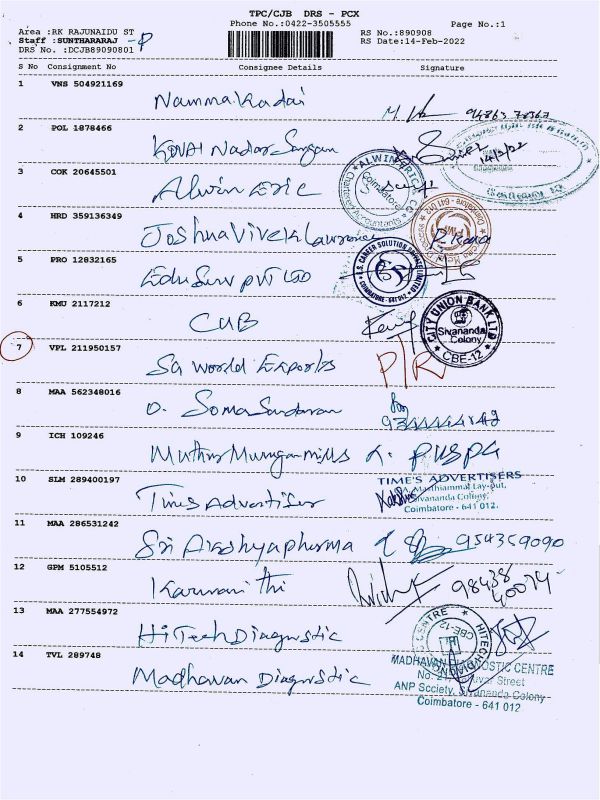 TPC/CJB DRS - PCX
Phone No.:0422-3505555
Page No.:1
Area :RK RAJUNAIDU ST
Staff :SUNTHARARAJ -P
DRS No. :DCJB89090801
RS No.:890908
RS Date:14-Feb-2022
S No Consignment No Consignee Details Signature
1 VNS 504921169
Namma Kadai
2 POL 1878466
KOVAI Nadar Sangam
14/2/22
3 COK 20645501
Alwin Eric
ALWIN ERIC & CO
Chartered Accountants
Coimbatore
4 HRD 359136349
Joshna Vivek Lawrence
5 PRO 12832165
Edu Serv PVT LTD
I.S. CAREER SOLUTION PRIVATE LIMITED
COIMBATORE - 641 012.
6 KMU 2117212
CUB
CITY UNION BANK LTD
Sivananda
Colony
CBE-12
7 VPL 211950157
Sa world Exports
P/R
8 MAA 562348016
D. Somasundaram
9 ICH 109246
Muthu Murugan mills
10 SLM 289400197
Times Advertiser
TIME'S ADVERTISERS
Sivananda Colony,
Coimbatore - 641 012.
11 MAA 286531242
Sri Aiashyapharma
954359090
12 GPM 5105512
Karunanithi
98438
40074
13 MAA 277554972
HiTech Diagnostic
HITECH
CENTRE
CBE-12
14 TVL 289748
Madhavan Diagnostic
MADHAVAN DIAGNOSTIC CENTRE
Street
ANP Society, Sivananda Colony
Coimbatore - 641 012